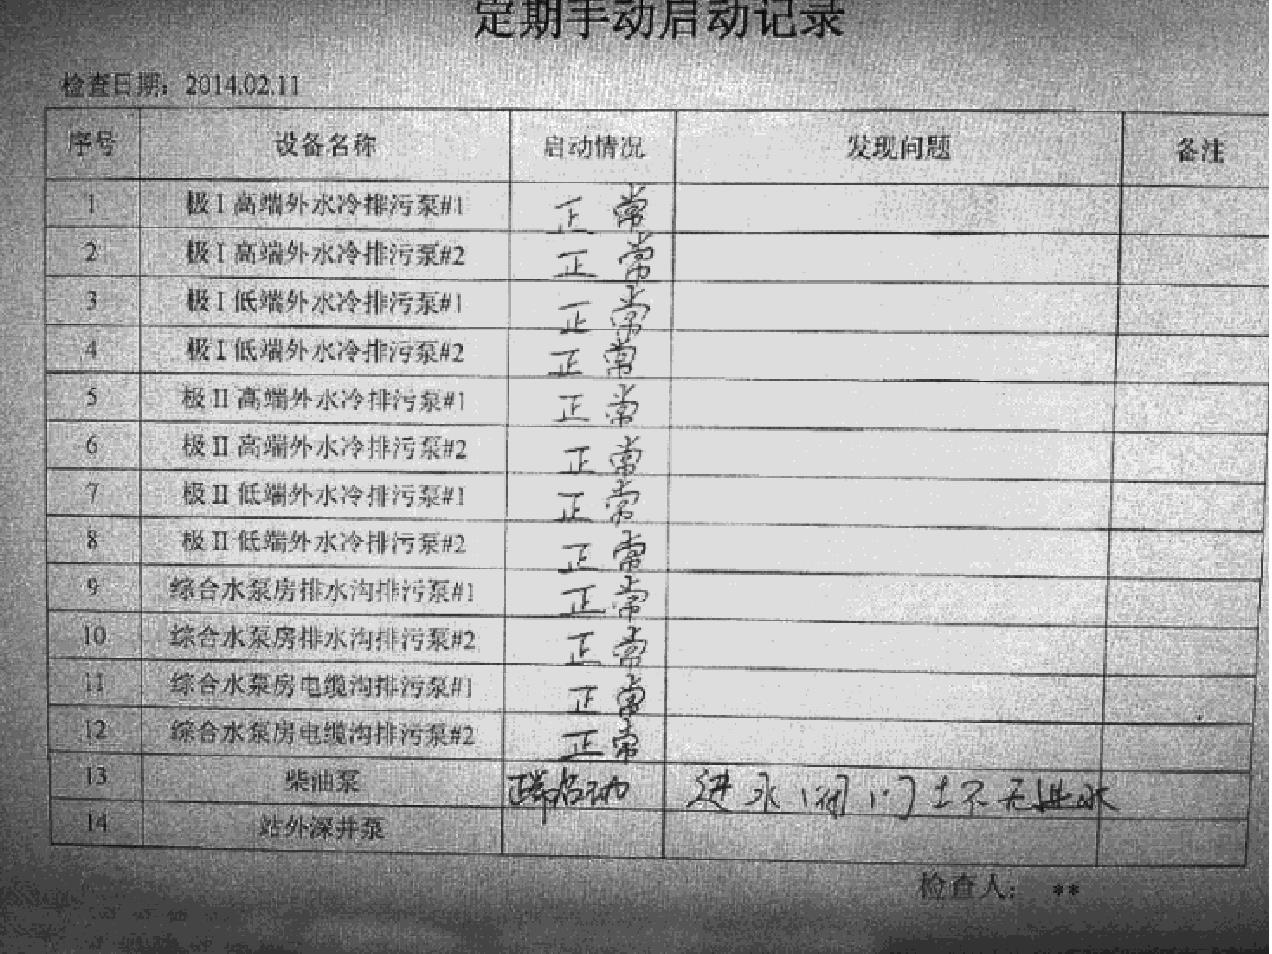 定期手动启动记录
检查日期：2014.02.11
序号 设备名称 启动情况 发现问题 备注
1 极Ⅰ高端外水冷排污泵#1 正常
2 极Ⅰ高端外水冷排污泵#2 正常
3 极Ⅰ低端外水冷排污泵#1 正常
4 极Ⅰ低端外水冷排污泵#2 正常
5 极Ⅱ高端外水冷排污泵#1 正常
6 极Ⅱ高端外水冷排污泵#2 正常
7 极Ⅱ低端外水冷排污泵#1 正常
8 极Ⅱ低端外水冷排污泵#2 正常
9 综合水泵房排水沟排污泵#1 正常
10 综合水泵房排水沟排污泵#2 正常
11 综合水泵房电缆沟排污泵#1 正常
12 综合水泵房电缆沟排污泵#2 正常
13 柴油泵 正常启动 进水阀门 无进水
14 站外深井泵
检查人： **